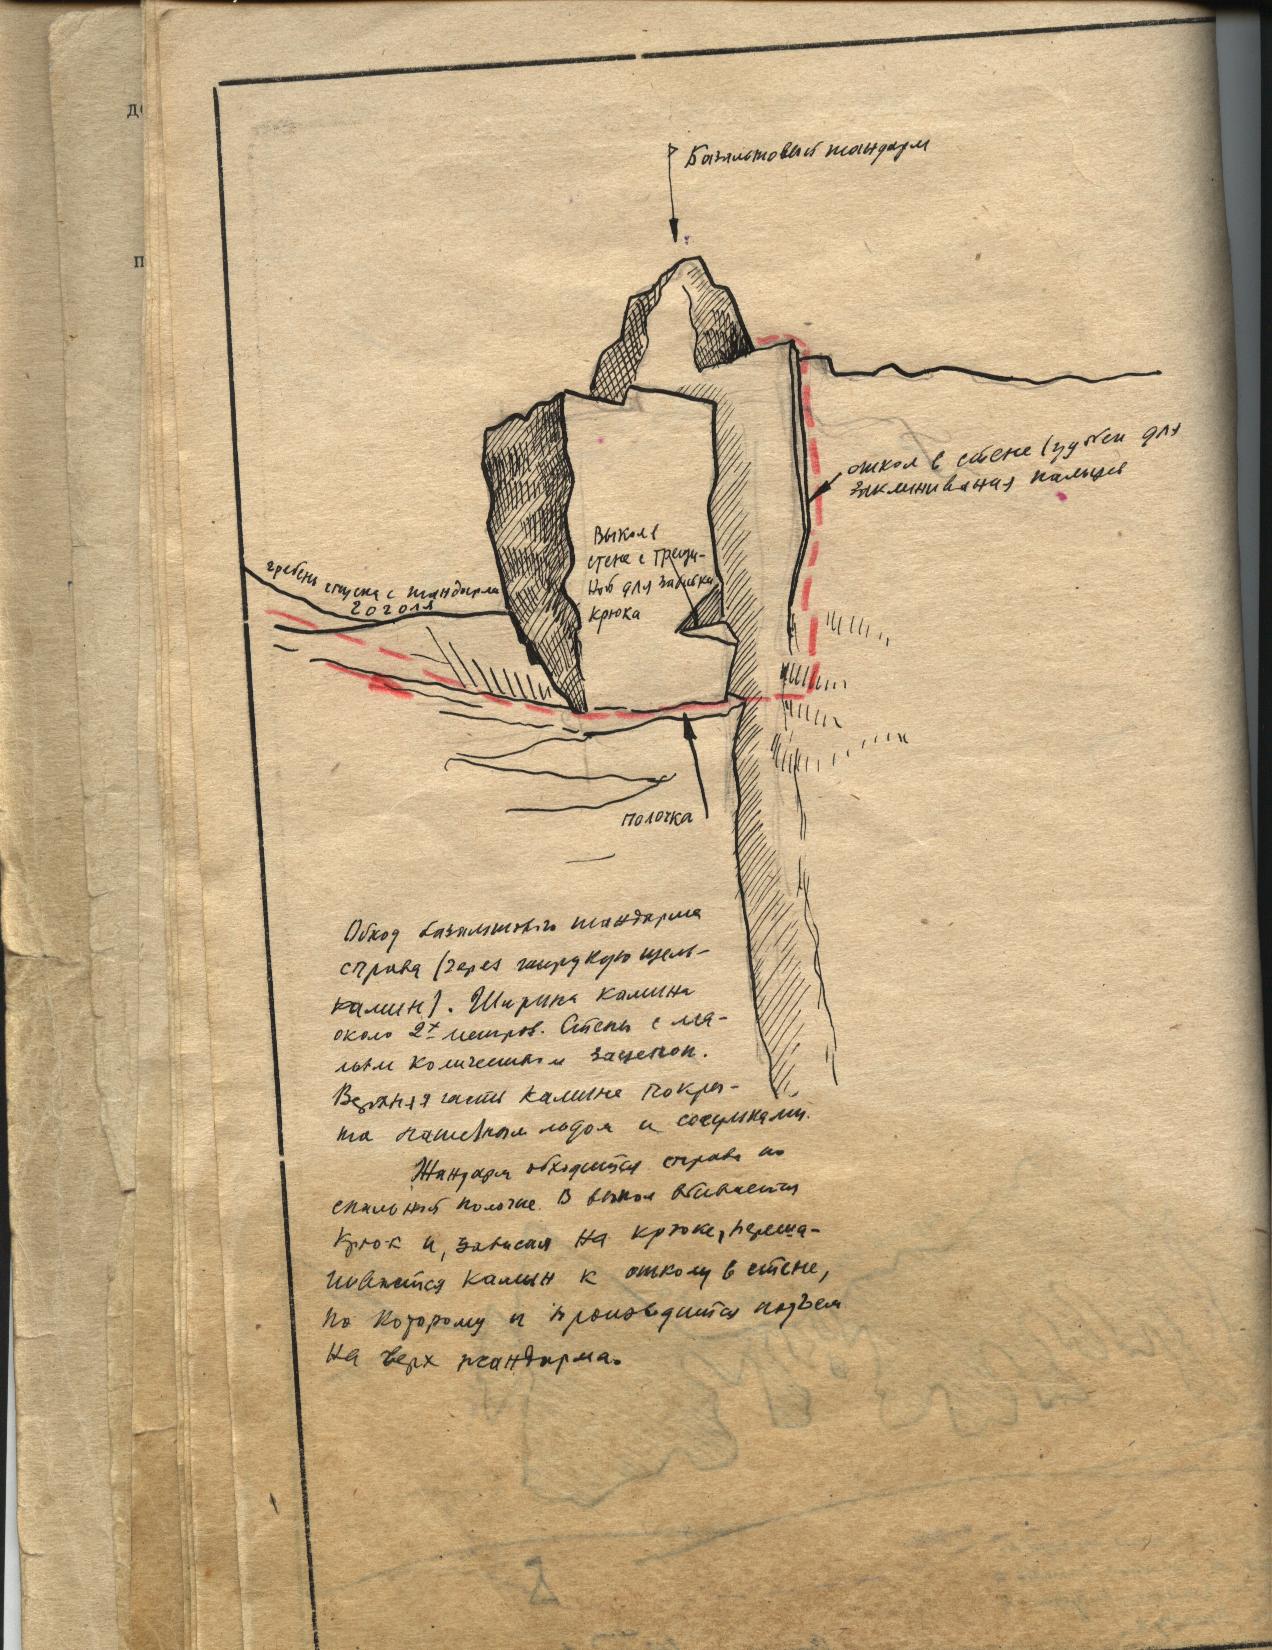 до
п
Базальтовый жандарм
откол в стене (удобен для
заклинивания пальцев
Выкол в
стене с трещи-
ной для забивки
крюка
гребень спуска с жандарма
гоголя
полочка
Обход базальтового жандарма
справа (через широкую щель-
камин). Ширина камина
около 2х метров. Стены с ма-
лым количеством зацепок.
Верхняя часть камина покры-
та натечным льдом и сосульками.
Жандарм обходится справа по
скальной полочке. В выкол вбивается
крюк и, зависая на крюке, переша-
гивается камин к отколу в стене,
по которому и производится подъем
на верх жандарма.